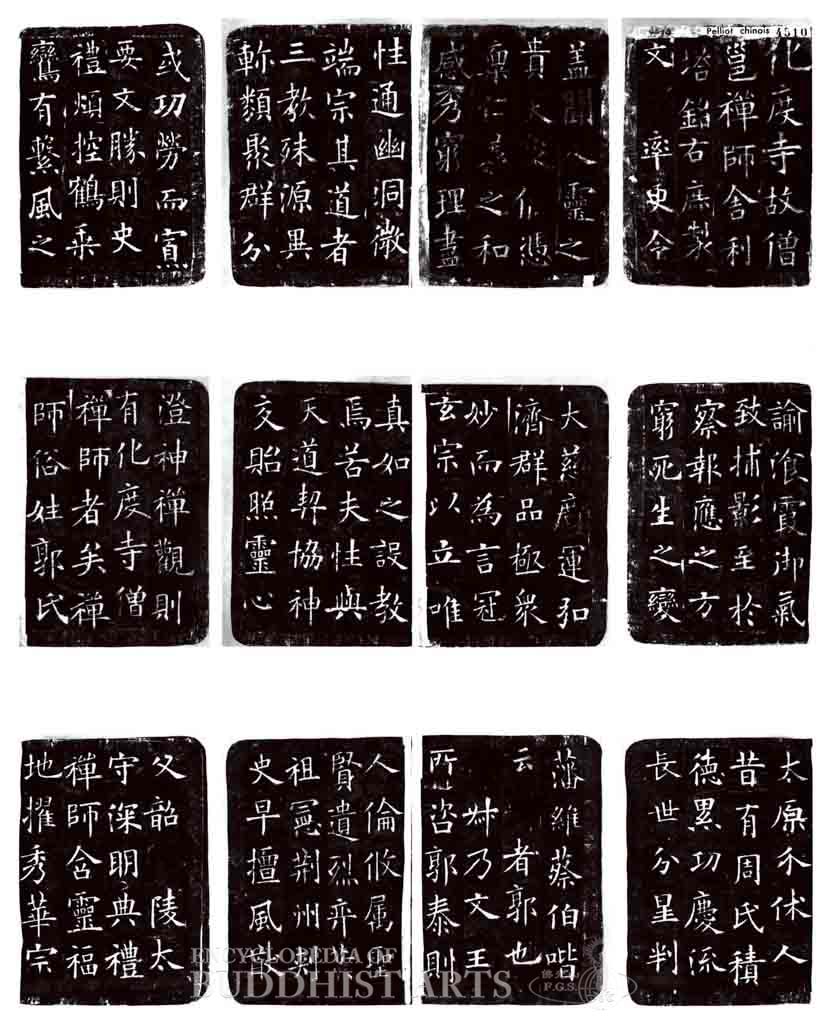 Pelliot chinois 4510
化度寺故僧
邕禪師舍利
塔銘右庶製
文 率更令
盖聞人靈之
貴天攸憑
稟仁義之和
感秀窮理盡
性通幽洞微
端宗其道者
三教殊源異
軫類聚群分
或功勞而寡
要文勝則史
禮煩控鶴乘
鸞有繫風之
諭飡霞御氣
致捕影至於
察報應之方
窮死生之變
大慈廣運弘
濟群品極衆
妙而為言冠
玄宗以立唯
真如之設教
焉若夫性與
天道契協神
交貽照靈心
澄神禪觀則
有化度寺僧
禪師者矣禪
師俗姓郭氏
太原介休人
昔有周氏積
德累功慶流
長世分星判
藩維蔡伯喈
云 者郭也
叔乃文王
所咨郭泰則
人倫攸属聖
賢遺烈弈葉
祖憲荆州刺
史早擅風猷
父韶 陵太
守深明典禮
禪師含靈福
地擢秀華宗
ENCYCLOPEDIA OF
BUDDHIST ARTS
F.G.S.